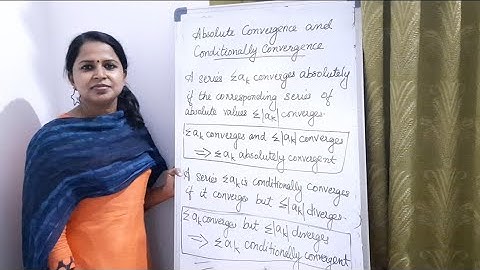 Absolute Convergence and
Conditionally Convergence
A series Σaₖ converges absolutely
if the corresponding series of
absolute values Σ|aₖ| converges.
Σaₖ converges and Σ|aₖ| converges
⇒ Σaₖ absolutely convergent
A series Σaₖ is conditionally converges
if it converges but Σ|aₖ| diverges.
Σaₖ converges but Σ|aₖ| diverges
⇒ Σaₖ conditionally convergent